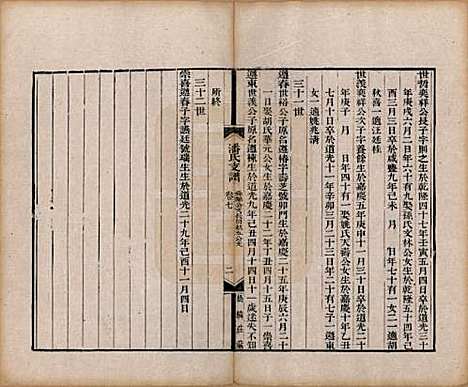 世哲奕祥公長子字則之生於乾隆四十七年壬寅五月四日卒於道光三十
年庚戌六月二日年六十有九娶孫氏文林公女生於乾隆五十四年己
酉三月三日卒於咸豐九年己未 月 日年七十有一女二適胡
秋喜一適汪廷桂
世漢奕祥公次子字養餘生於嘉慶五年庚申十一月三日卒於道光二十
年庚子 月 日年四十有一娶姚氏天壽公女生於嘉慶十一年
七月十日卒於道光十一年辛卯三月三日年二十有七子一適東
女一適姚兆清
三十一世
適春世裕公子原名適椿字壽芝號卯門生於嘉慶二十五年庚辰六月二十
一日娶胡氏華元公女生於嘉慶二十二年丁丑四月十五日子一崇喜
適東世漢公子原名適棟生於道光九年己丑四月十四日十一歲迷失不知
所終
三十二世
崇喜適春子字慕廷號瑞生生於道光二十九年己酉十一月四日
潘氏支譜
卷七
二